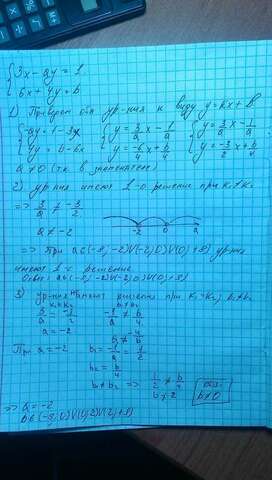 {3x - ay = 1
{6x + 4y = b
1) Приведём оба ур-ния к виду y = kx + b
{-ay = 1 - 3x {y = 3/a x - 1/a {y = 3/a x - 1/a
{4y = b - 6x {y = -6/4 x + b/4 {y = -3/2 x + b/4
a ≠ 0 (т.к в знаменателе)
2) ур-ния имеют 1-о решение при k₁ ≠ k₂
=> 3/a ≠ -3/2
a ≠ -2
-2 0 a
=> При a ∈ (-∞; -2) ∪ (-2; 0) ∪ (0; +∞) ур-ия
имеют 1-о решение
Ответ: a ∈ (-∞; -2) ∪ (-2; 0) ∪ (0; +∞)
3) ур-ния решения при k₁ = k₂; b₁ ≠ b₂
k₁ = k₂ b₁ ≠ b₂
3/a = -3/2 -1/a ≠ b/4
a = -2
При a = -2 b₁ = -1/a = 1/2
b₂ = b/4
b₁ ≠ b₂ => 1/2 ≠ b/4
b ≠ 2
b ≠ 0
=> a = -2
b ∈ (-∞; 0) ∪ (0; 2) ∪ (2; +∞)